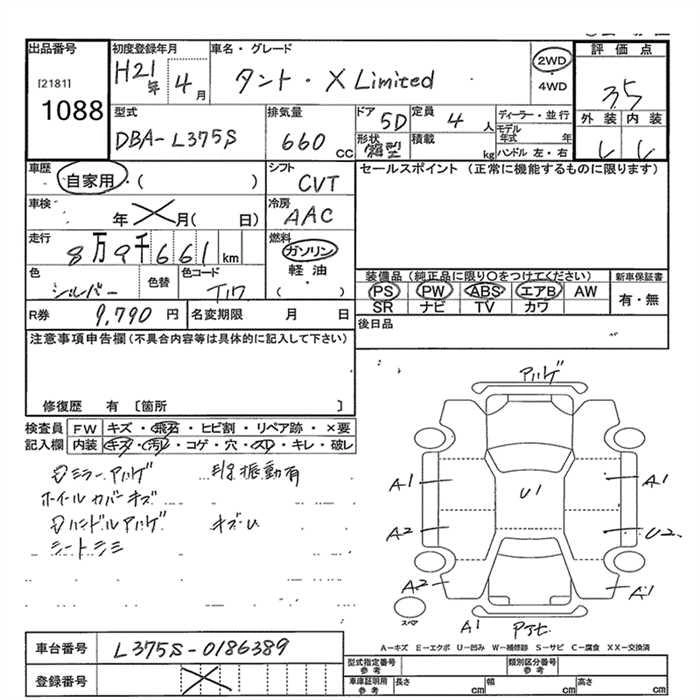 出品番号
[2181]
1088
初度登録年月
H21年 4月
車名・グレード
タント・X Limited
2WD
・
4WD
評価点
3.5
外装 内装
型式
DBA-L375S
排気量
660 CC
ドア 5D
形状 箱型
定員 4 人
積載 kg
ディーラー・並行
モデル年式 年
ハンドル 左・右
車歴
自家用・( )
シフト
CVT
車検
年 月( 日)
冷房
AAC
走行
8万9千661 km
燃料
ガソリン
軽油
( )
色
シルバー
色替
色コード
T17
R券 9,790 円
名変期限 月 日
セールスポイント (正常に機能するものに限ります)
装備品(純正品に限り○をつけてください)
PS PW ABS エアB AW
SR ナビ TV カワ
新車保証書
有・無
後日品
注意事項申告欄(不具合内容等は具体的に記入して下さい)
修復歴 有 [箇所 ]
検査員 FW キズ・飛石・ヒビ割・リペア跡・×要
記入欄 内装 キズ・汚レ・コゲ・穴・スレ・キレ・破レ
ミラーアハゲ
振動有
ホイールカバーキズ
ハンドルアハゲ
キズU
シートシミ
アハゲ
A1
A1
U1
A2
U2
A2
A1
スペア
A1
A-キズ E-エクボ U-凹み W-補修跡 S-サビ C-腐食 XX-交換済
車台番号 L375S-0186389
登録番号
型式指定番号 参考
類別区分番号 参考
車庫証明用 参考
長さ cm
幅 cm
高さ cm